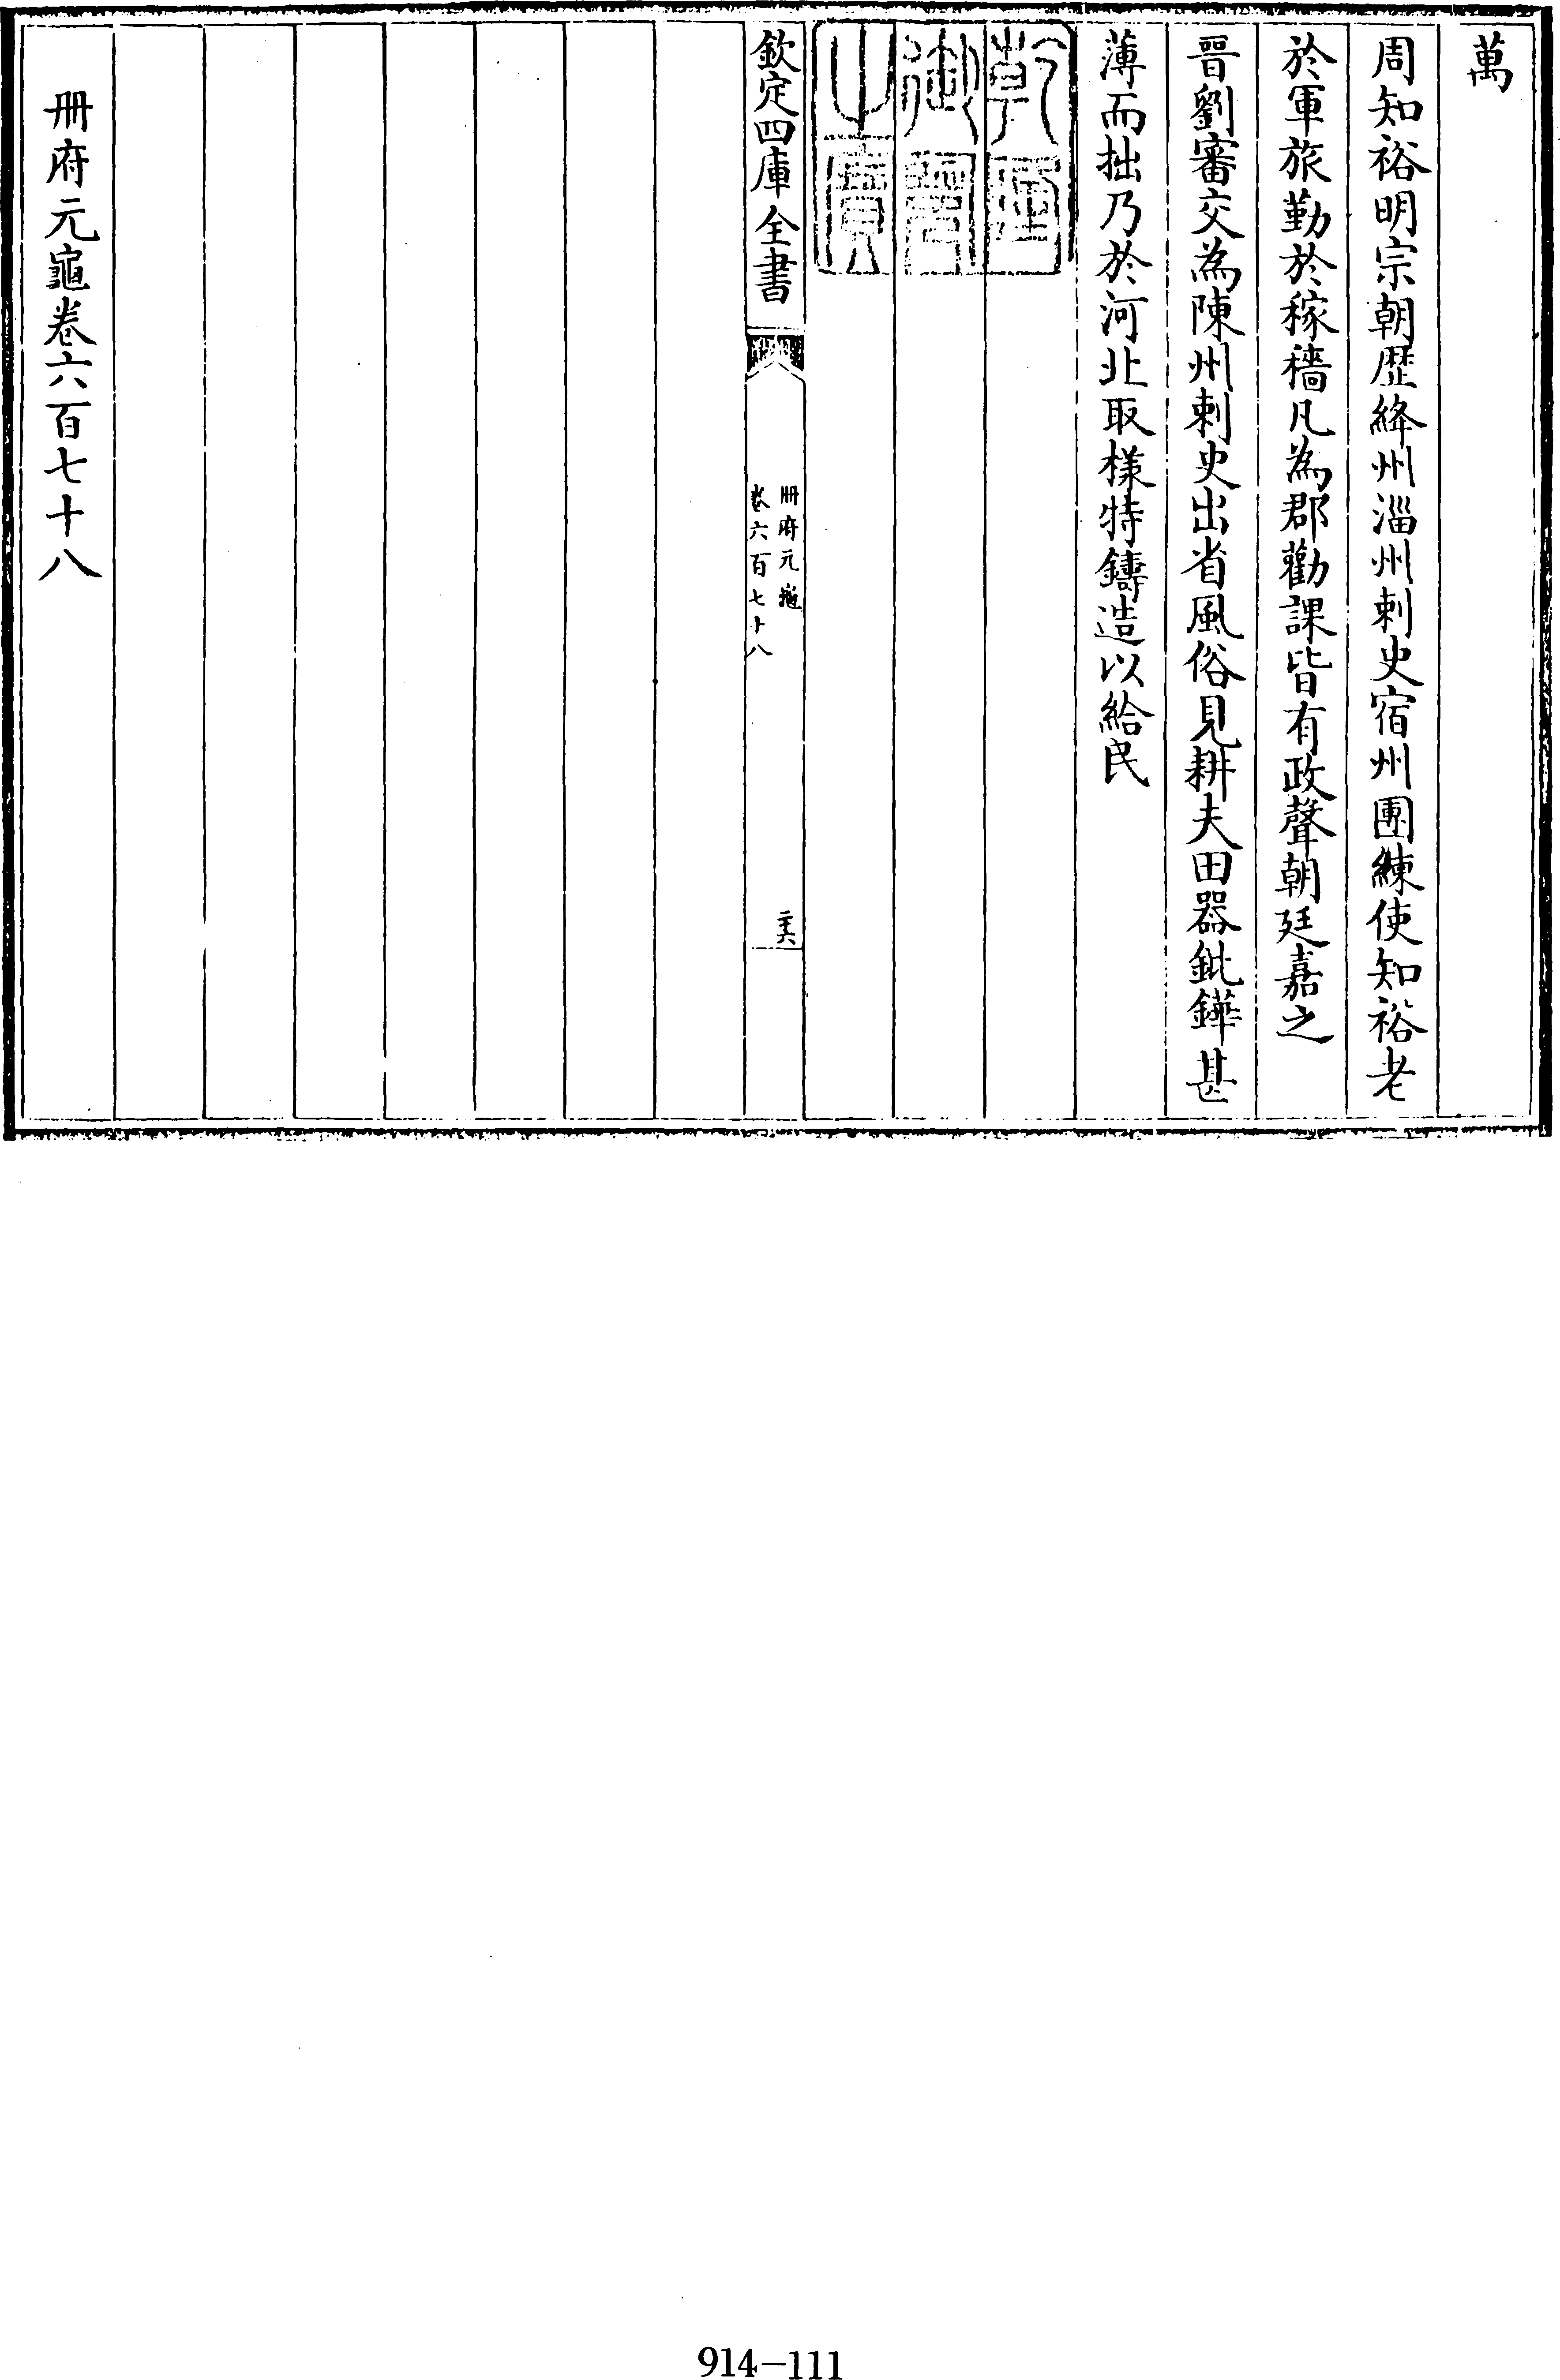 萬
周知裕明宗朝歴絳州淄州刺史宿州團練使知裕老
於軍旅勤於稼穡凡為郡勸課皆有政聲朝廷嘉之
晉劉審交為陳州刺史出省風俗見耕夫田器鈚鏵甚
薄而拙乃於河北取様特鑄造以給民
乾隆
御覽
之寶
欽定四庫全書
冊府元龜
卷六百七十八
二十六
冊府元龜卷六百七十八
914-111